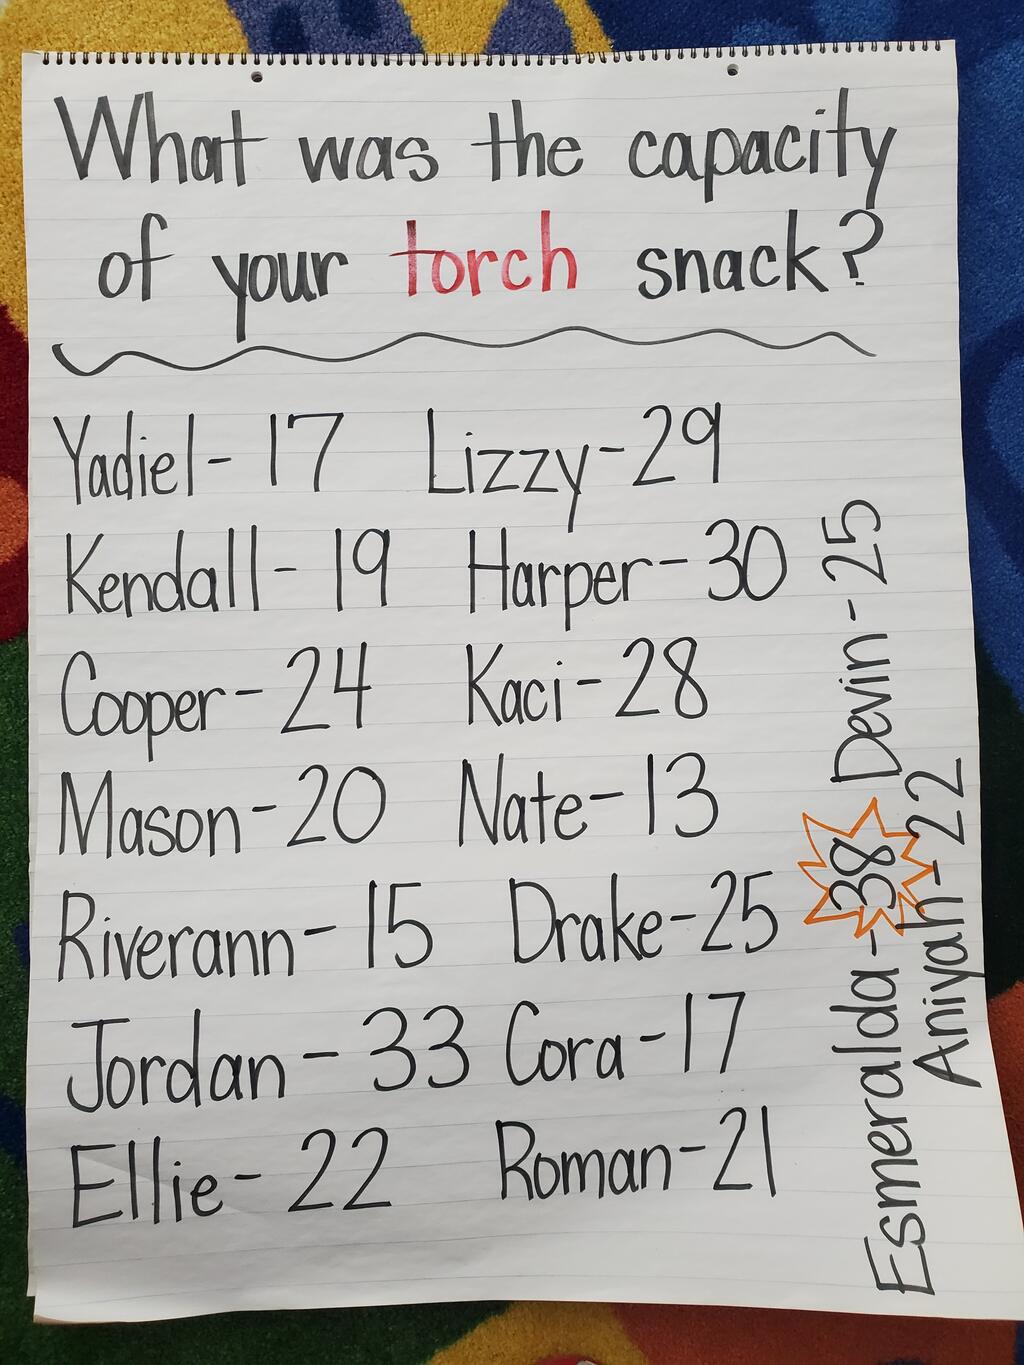 What was the capacity
of your torch snack?
Yadiel - 17 Lizzy - 29
Kendall - 19 Harper - 30
Cooper - 24 Kaci - 28
Mason - 20 Nate - 13
Riverann - 15 Drake - 25
Jordan - 33 Cora - 17
Ellie - 22 Roman - 21
Esmeralda - 38 Devin - 25
Aniyah - 22